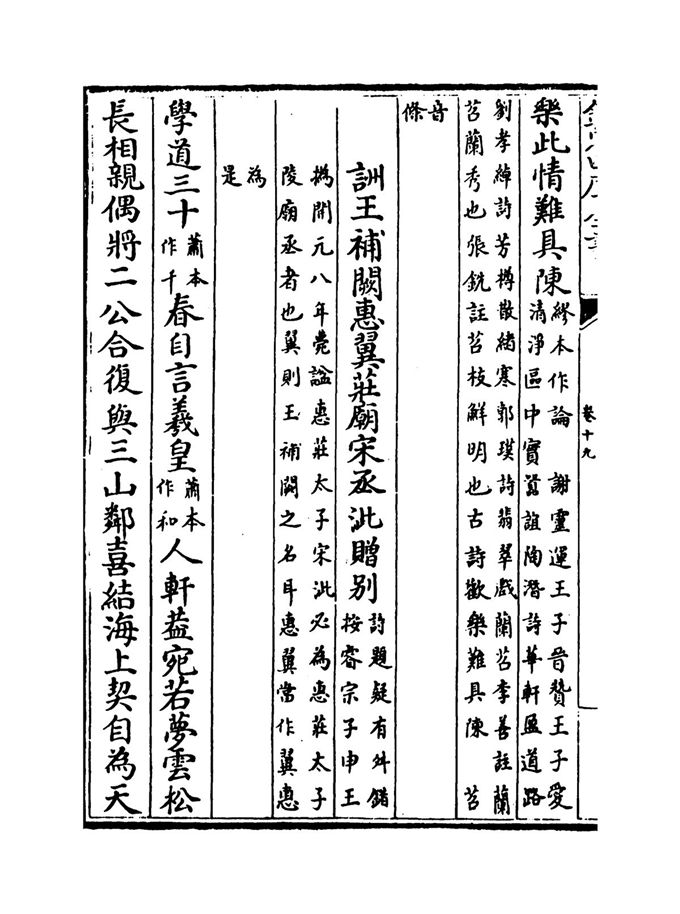 卷十九
樂此情難具陳繆本作論 謝靈運王子晉贊王子愛清淨區中實嚚諠陶潛詩華軒盈道路
劉孝綽詩芳樽散緒寒郭璞詩翡翠戲蘭苕李善註蘭
苕蘭秀也張銑註苕枝鮮明也古詩歡樂難具陳 苕
音
條
詶王補闕惠翼莊廟宋丞泚贈別詩題疑有舛錯按睿宗子申王
撝開元八年薨諡惠莊太子宋泚必為惠莊太子
陵廟丞者也翼則王補闕之名耳惠翼當作翼惠
為
是
學道三十蕭本作千春自言羲皇蕭本作和人軒葢宛若夢雲松
長相親偶將二公合復與三山鄰喜結海上契自為天